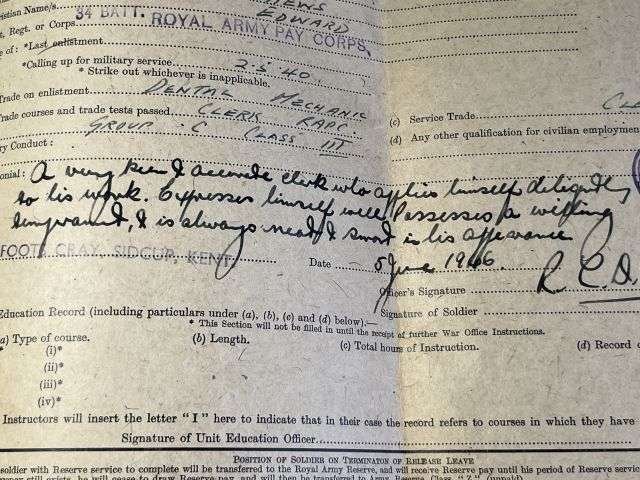 ristian Name/s
EWS
EDWARD
t, Regt. or Corps
34 BATT. ROYAL ARMY PAY CORPS.
te of : *Last enlistment
*Calling up for military service 2.5.40
* Strike out whichever is inapplicable.
Trade on enlistment DENTAL MECHANIC
Trade courses and trade tests passed CLERK RAPC.
GROUP C CLASS III
ry Conduct :
(c) Service Trade CL
(d) Any other qualification for civilian employmen
onial : A very keen & accurate clerk who applies himself diligently
to his work. Expresses himself well. Possesses a willing
temperament, & is always neat & smart in his appearance
FOOTS CRAY, SIDCUP, KENT.
Date 5 June 1946.
Officer's Signature
Signature of Soldier
Education Record (including particulars under (a), (b), (c) and (d) below).—
* This Section will not be filled in until the receipt of further War Office Instructions.
a) Type of course. (b) Length. (c) Total hours of Instruction. (d) Record o
(i)*
(ii)*
(iii)*
(iv)*
Instructors will insert the letter " I " here to indicate that in their case the record refers to courses in which they have
Signature of Unit Education Officer
POSITION OF SOLDIER ON TERMINATON OF RELEASE LEAVE
soldier with Reserve service to complete will be transferred to the Royal Army Reserve, and will receive Reserve pay until his period of Reserve servic